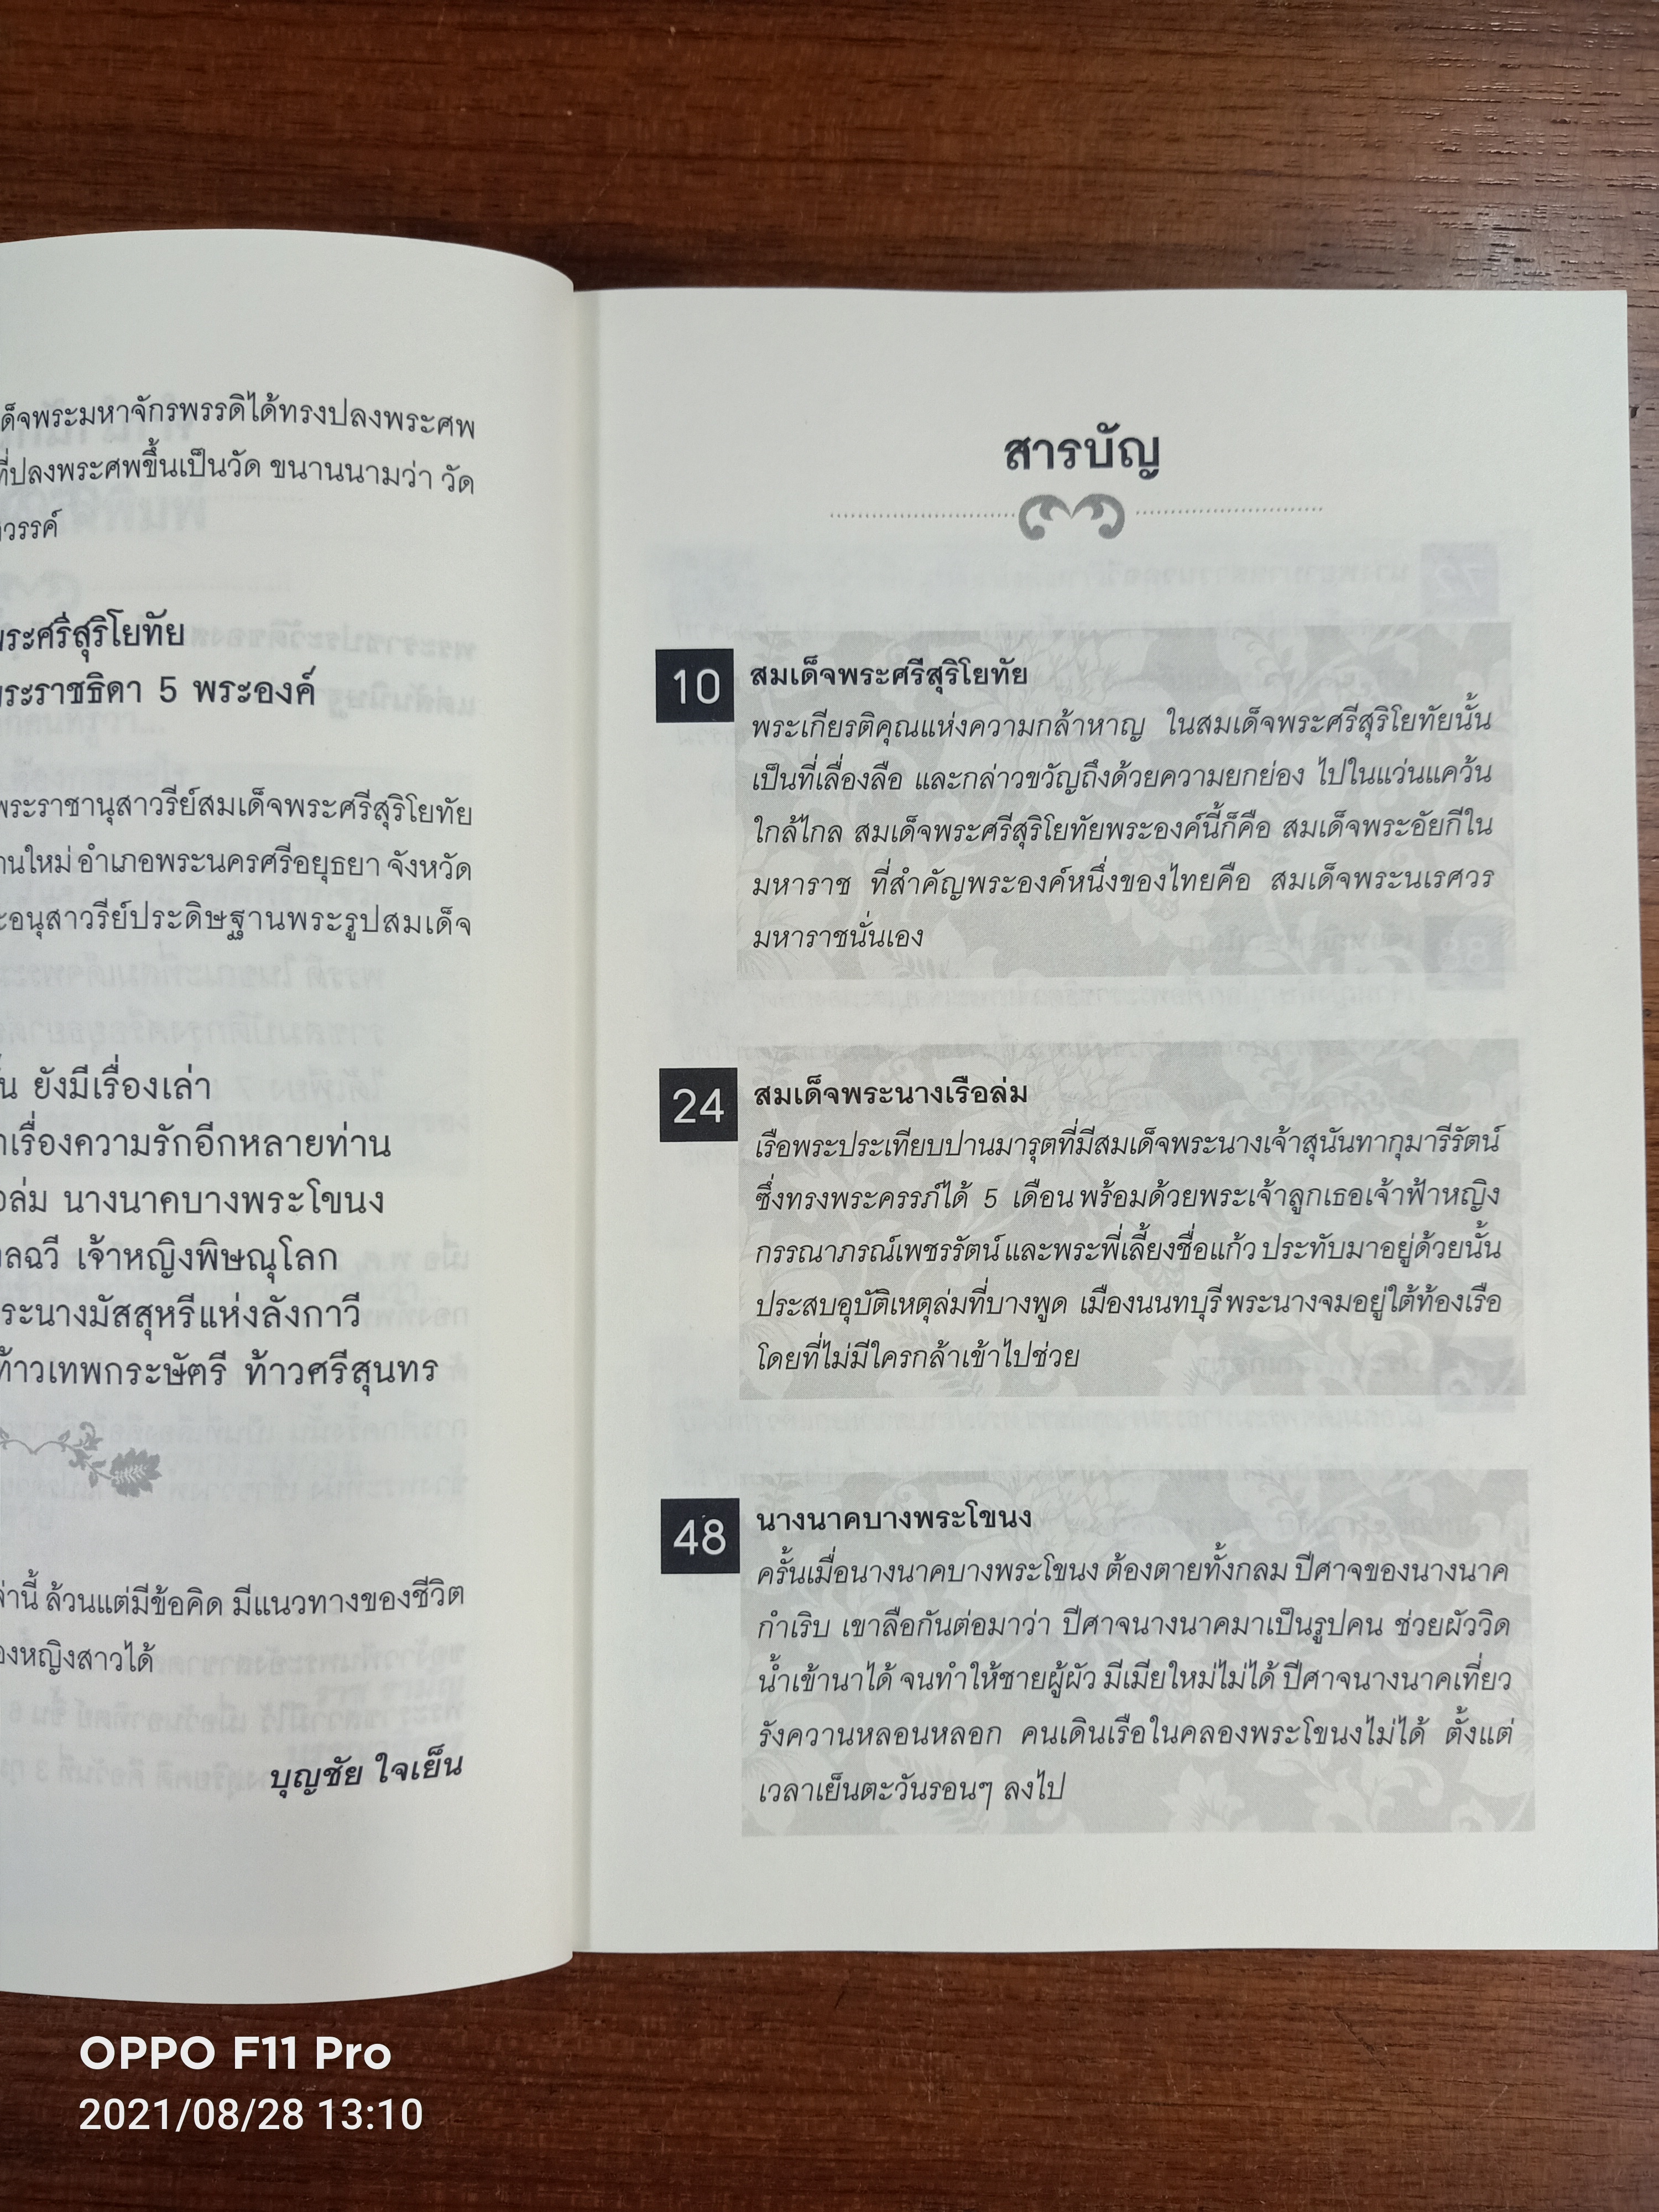 เด็จพระมหาจักรพรรดิได้ทรงปลงพระศพ
ที่ปลงพระศพขึ้นเป็นวัด ขนานนามว่า วัด
วรรค์
พระศรีสุริโยทัย
พระราชธิดา 5 พระองค์
พระราชานุสาวรีย์สมเด็จพระศรีสุริโยทัย
านใหม่ อำเภอพระนครศรีอยุธยา จังหวัด
ะอนุสาวรีย์ประดิษฐานพระรูปสมเด็จ
ั้น ยังมีเรื่องเล่า
าเรื่องความรักอีกหลายท่าน
อล่ม นางนาคบางพระโขนง
ลฉวี เจ้าหญิงพิษณุโลก
ระนางมัสสุหรีแห่งลังกาวี
ท้าวเทพกระษัตรี ท้าวศรีสุนทร
ล่านี้ ล้วนแต่มีข้อคิด มีแนวทางของชีวิต
องหญิงสาวได้
บุญชัย ใจเย็น
สารบัญ
10 สมเด็จพระศรีสุริโยทัย
พระเกียรติคุณแห่งความกล้าหาญ ในสมเด็จพระศรีสุริโยทัยนั้น
เป็นที่เลื่องลือ และกล่าวขวัญถึงด้วยความยกย่อง ไปในแว่นแคว้น
ใกล้ไกล สมเด็จพระศรีสุริโยทัยพระองค์นี้ก็คือ สมเด็จพระอัยกีใน
มหาราช ที่สำคัญพระองค์หนึ่งของไทยคือ สมเด็จพระนเรศวร
มหาราชนั่นเอง
24 สมเด็จพระนางเรือล่ม
เรือพระประเทียบปานมารุตที่มีสมเด็จพระนางเจ้าสุนันทากุมารีรัตน์
ซึ่งทรงพระครรภ์ได้ 5 เดือน พร้อมด้วยพระเจ้าลูกเธอเจ้าฟ้าหญิง
กรรณาภรณ์เพชรรัตน์ และพระพี่เลี้ยงชื่อแก้ว ประทับมาอยู่ด้วยนั้น
ประสบอุบัติเหตุล่มที่บางพูด เมืองนนทบุรี พระนางจมอยู่ใต้ท้องเรือ
โดยที่ไม่มีใครกล้าเข้าไปช่วย
48 นางนาคบางพระโขนง
ครั้นเมื่อนางนาคบางพระโขนง ต้องตายทั้งกลม ปีศาจของนางนาค
กำเริบ เขาลือกันต่อมาว่า ปีศาจนางนาคมาเป็นรูปคน ช่วยผัววิด
น้ำเข้านาได้ จนทำให้ชายผู้ผัว มีเมียใหม่ไม่ได้ ปีศาจนางนาคเที่ยว
รังควานหลอนหลอก คนเดินเรือในคลองพระโขนงไม่ได้ ตั้งแต่
เวลาเย็นตะวันรอนๆ ลงไป
OPPO F11 Pro
2021/08/28 13:10